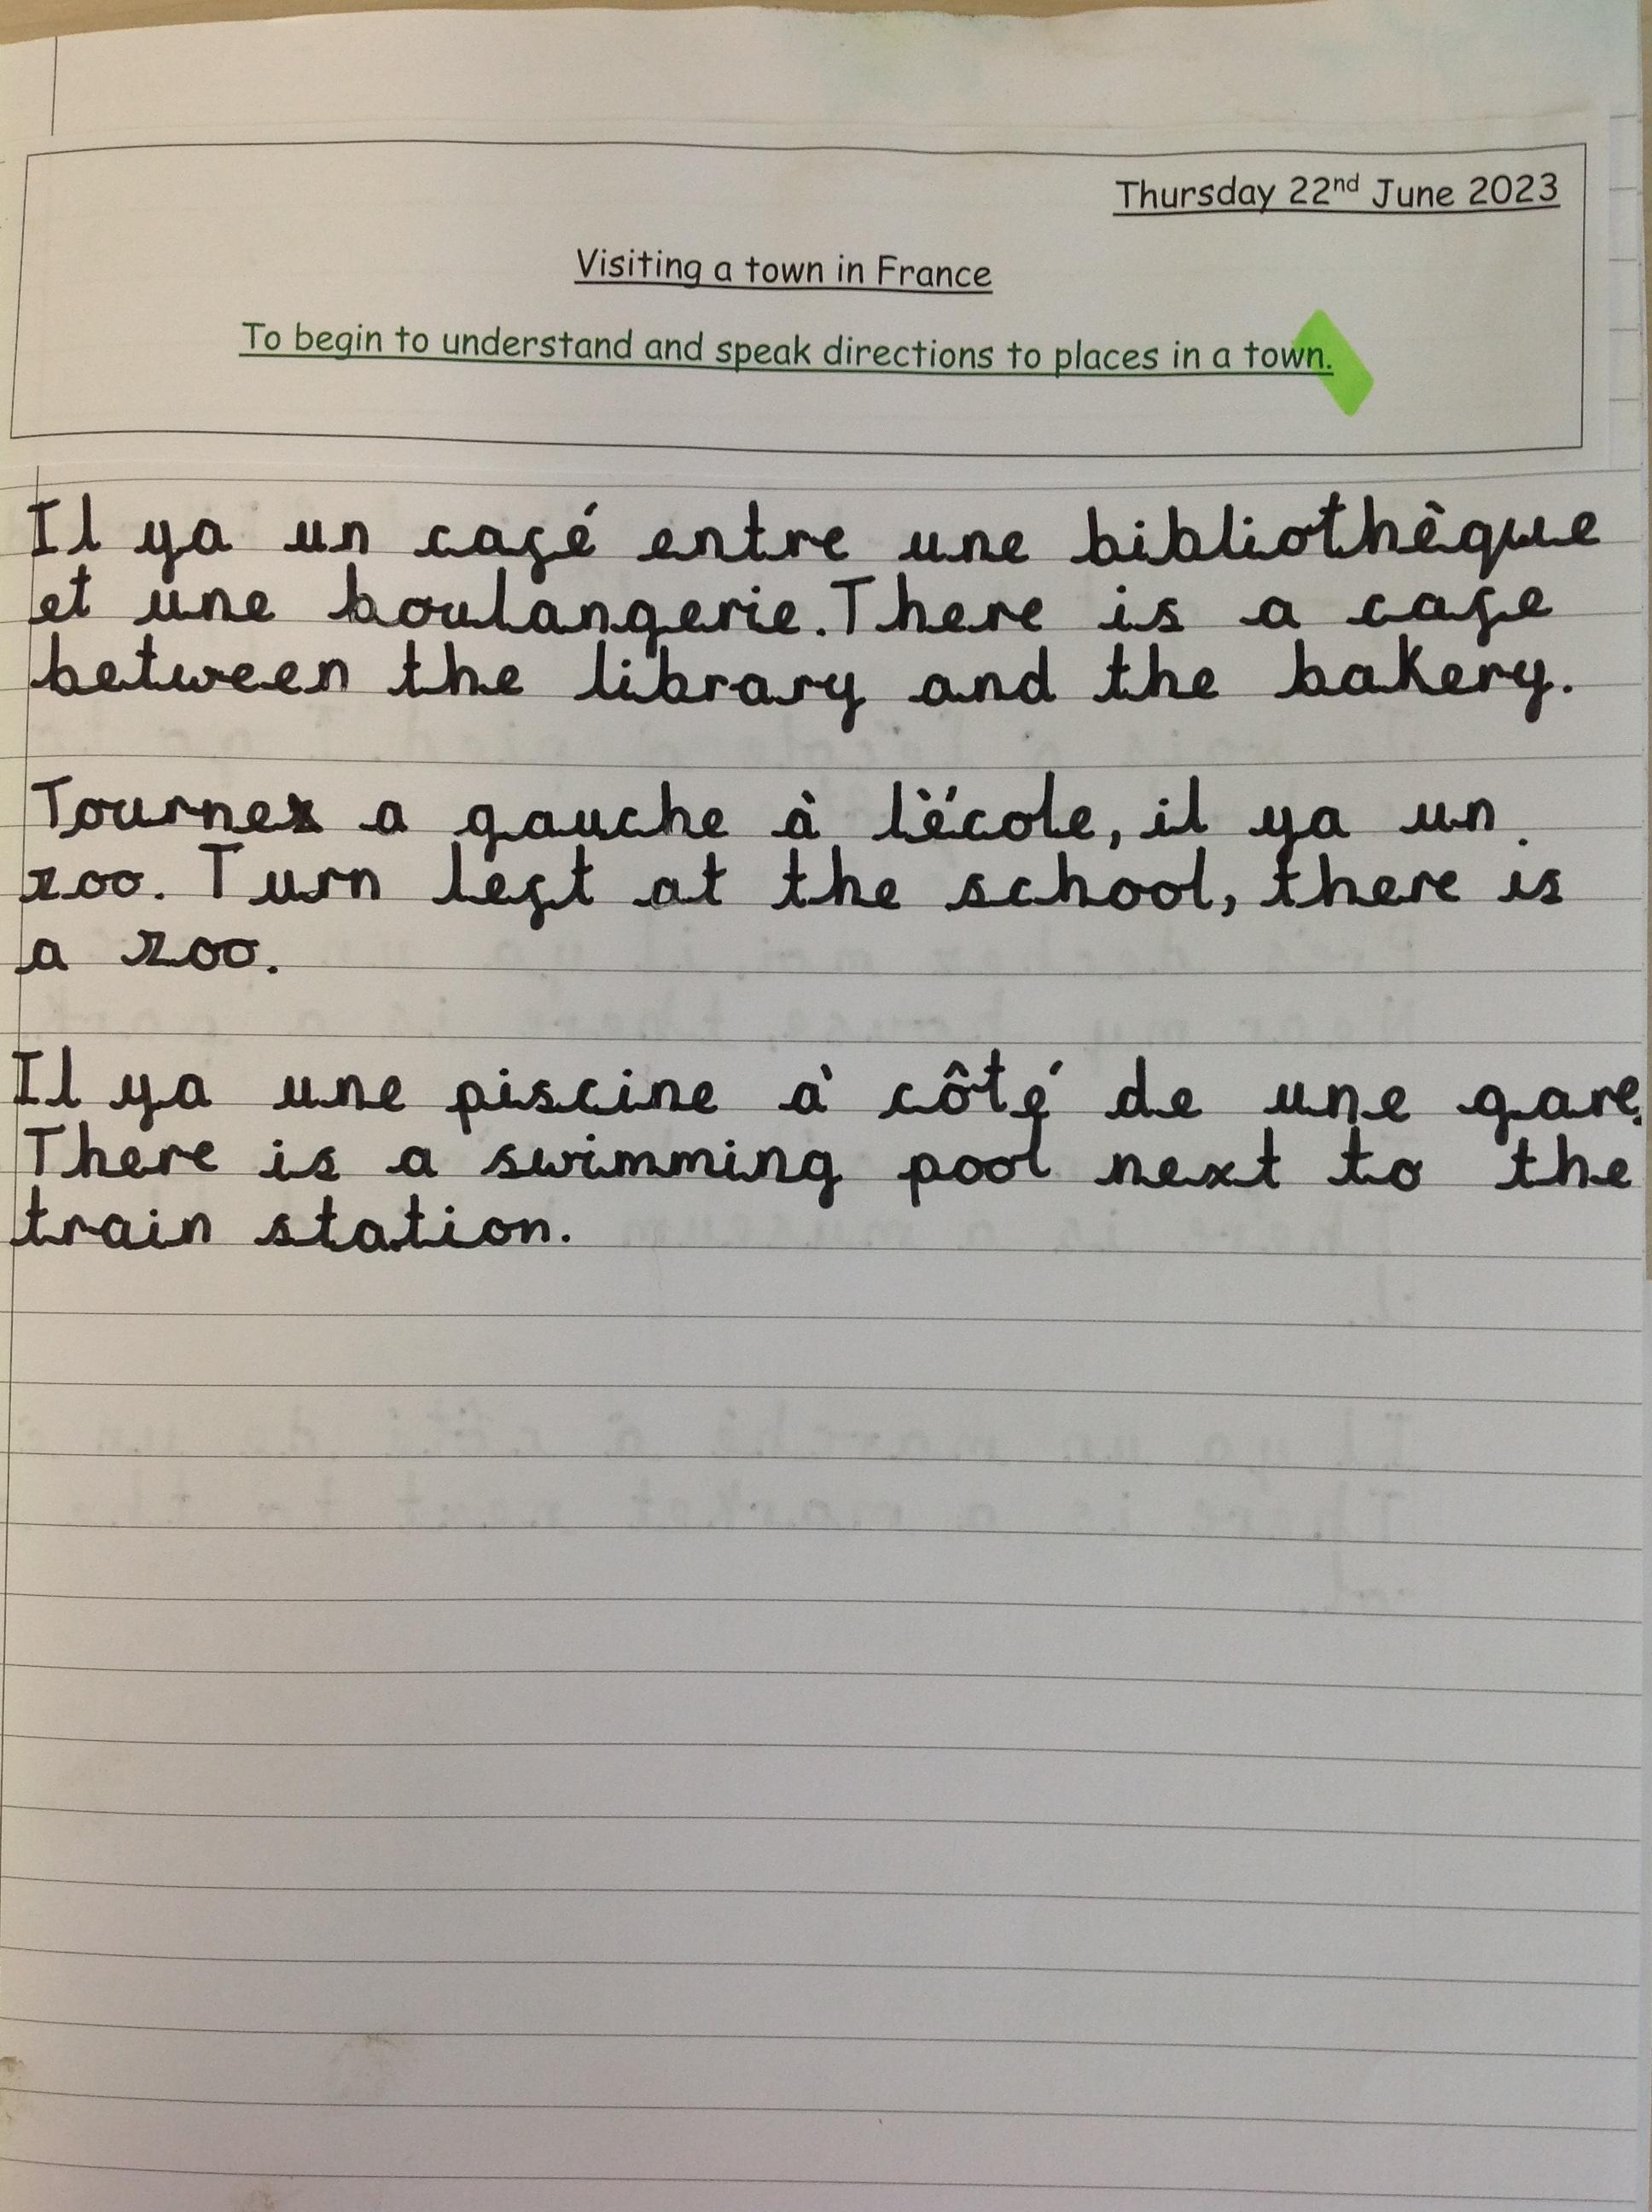 Thursday 22nd June 2023
Visiting a town in France
To begin to understand and speak directions to places in a town.
Il ya un café entre une bibliothêque
et une boulangerie. There is a cafe
between the library and the bakery.
Tournez a gauche à l'école, il ya un
zoo. Turn left at the school, there is
a zoo.
Il ya une piscine à côté de une gare.
There is a swimming pool next to the
train station.